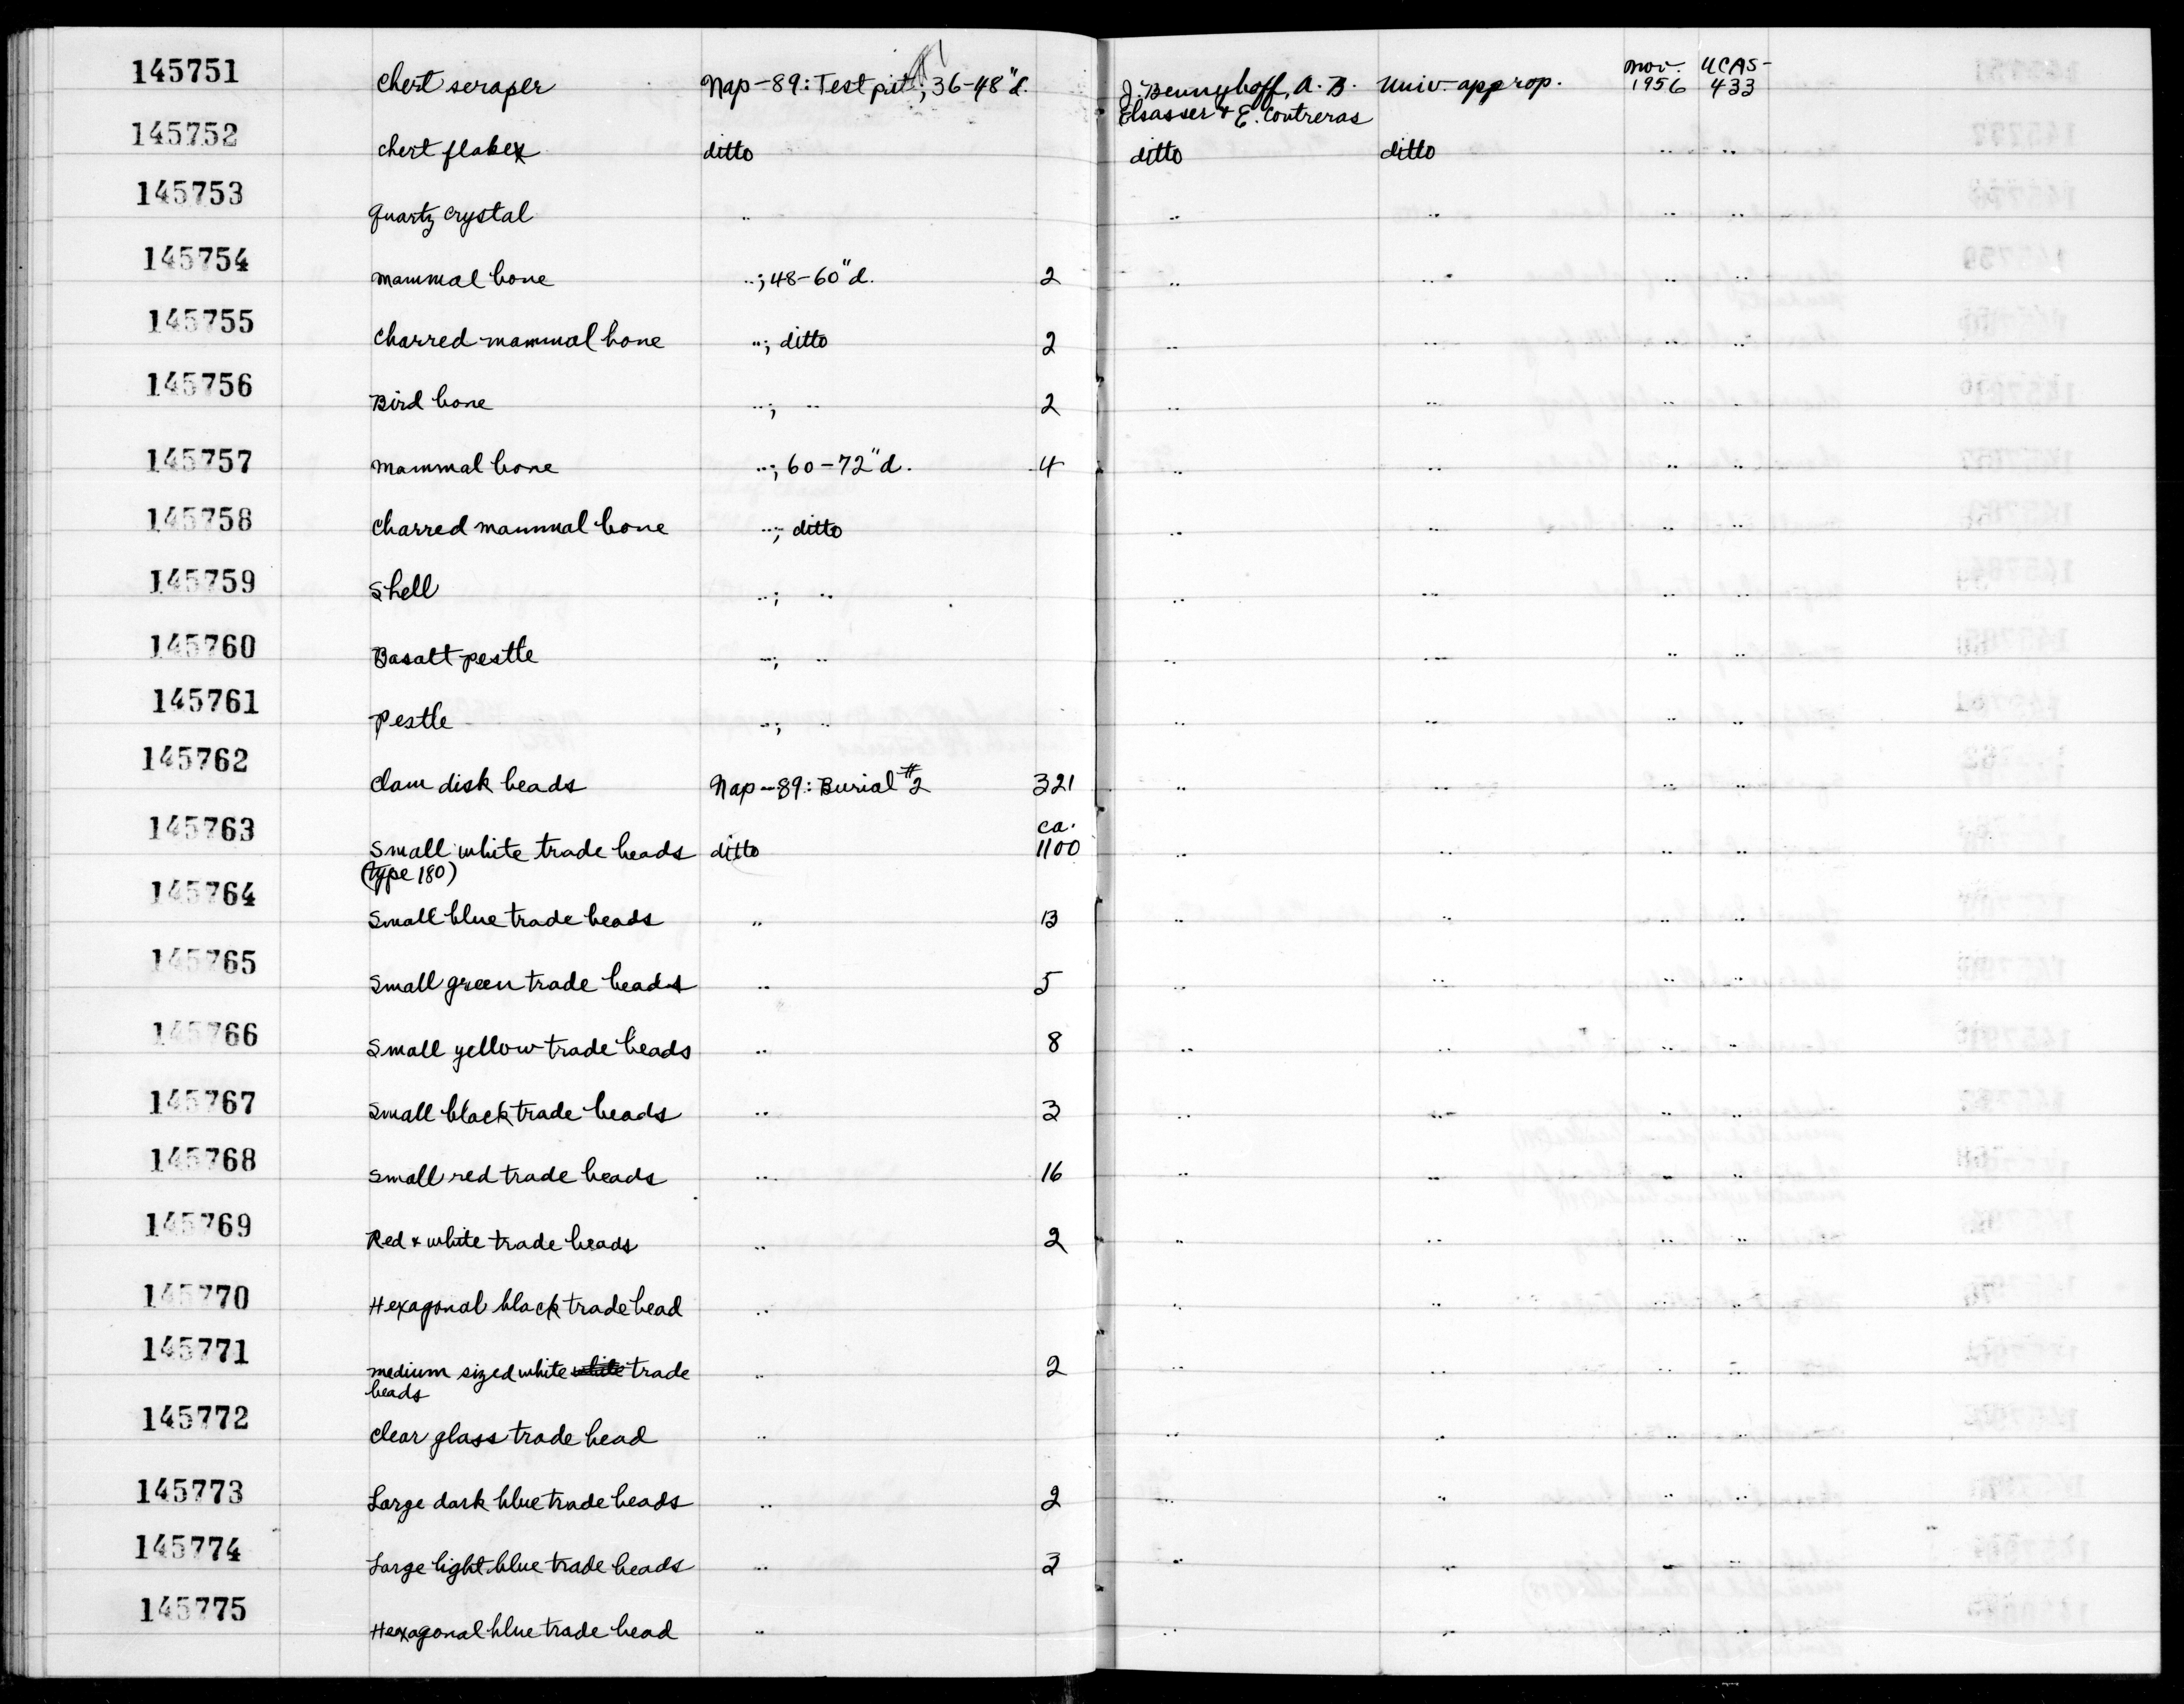 145751 Chert scraper Nap-89: Test pit; 36-48"d. J. Bennyhoff, A. B. Elsasser & E. Contreras Univ. approp. Nov. 1956 UCAS-433
145752 Chert flake ditto ditto ditto " "
145753 Quartz crystal " " " " "
145754 Mammal bone "; 48-60"d. 2 " " " "
145755 Charred mammal bone "; ditto 2 " " " "
145756 Bird bone "; " 2 " " " "
145757 Mammal bone "; 60-72"d. 4 " " " "
145758 Charred mammal bone "; ditto " " " "
145759 Shell "; " " " " "
145760 Basalt pestle "; " " " " "
145761 Pestle "; " " " " "
145762 Clam disk beads Nap-89: Burial #2 321 " " " "
145763 Small white trade beads (type 180) ditto ca. 1100 " " " "
145764 Small blue trade beads " 13 " " " "
145765 Small green trade beads " 5 " " " "
145766 Small yellow trade beads " 8 " " " "
145767 Small black trade beads " 3 " " " "
145768 Small red trade beads " 16 " " " "
145769 Red & white trade beads " 2 " " " "
145770 Hexagonal black trade bead " " " " "
145771 Medium sized white white trade beads " 2 " " " "
145772 Clear glass trade bead " " " " "
145773 Large dark blue trade beads " 2 " " " "
145774 Large light blue trade beads " 3 " " " "
145775 Hexagonal blue trade bead " " " " "